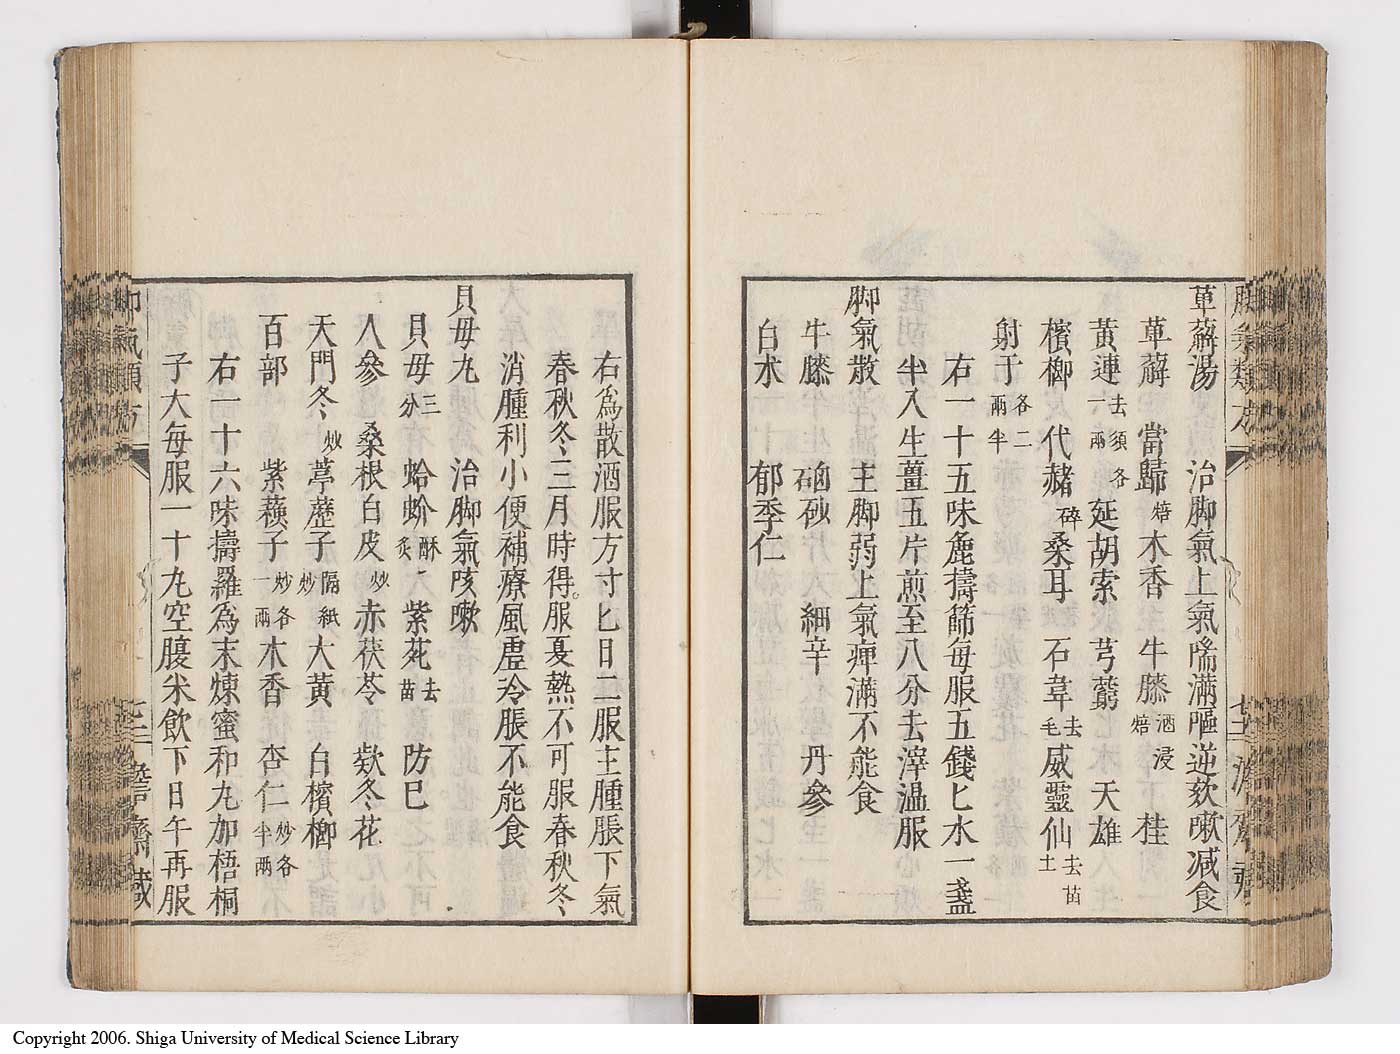 萆薢湯　治脚氣上氣喘滿嘔逆欬嗽减食
萆薢　當歸焙木香　牛膝酒浸焙　桂
黃連去須各一兩延胡索　芎藭　天雄
檳榔　代赭碎桑耳　石韋去毛威靈仙去苗土
射干各二兩半
右一十五味麁擣篩每服五錢匕水一盞
半入生薑五片煎至八分去滓温服
脚氣散　主脚弱上氣痹滿不能食
牛膝　硇砂　細辛　丹參
白朮　郁季仁
右爲散酒服方寸匕日二服主腫脹下氣
春秋冬三月時得服夏熱不可服春秋冬
消腫利小便補療風虛冷脹不能食
貝母丸　治脚氣咳嗽
貝母三分　蛤蚧酥炙　紫菀去苗　防巳
人參　桑根白皮炒赤茯苓　欵冬花
天門冬炒葶藶子隔紙炒大黃　白檳榔
百部　紫蘇子炒各一兩木香　杏仁炒各半兩
右一十六味擣羅爲末煉蜜和丸加梧桐
子大每服一十丸空腹米飲下日午再服
脚氣類方
Copyright 2006. Shiga University of Medical Science Library